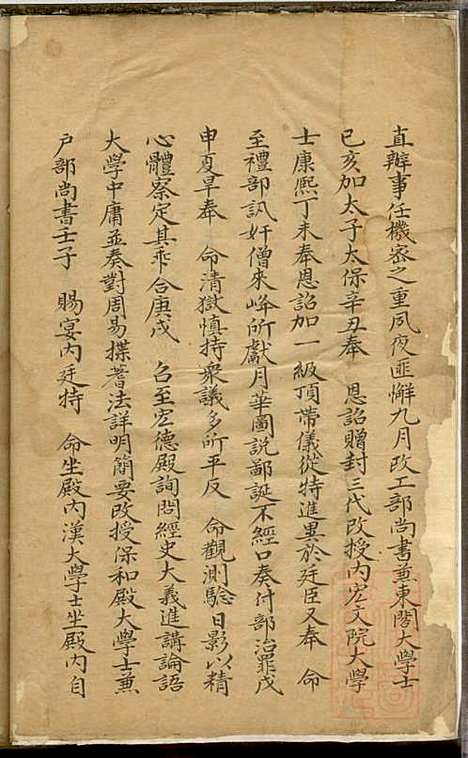 直辦事任機密之重夙夜匪懈九月改工部尚書兼東閣大學士
己亥加太子太保辛丑奉 恩詔贈封三代改授內宏文院大學
士康熙丁未奉恩詔加一級頂帶儀從特進異於廷臣又奉 命
至禮部訊奸僧來峰所獻月華圖說鄙誕不經口奏付部治罪戊
申夏旱奉 命清獄慎持衆議多所平反 命觀測驗日影以精
心體察定其乖合庚戌 召至宏德殿詢問經史大義進講論語
大學中庸並奏對周易揲蓍法詳明簡要改授保和殿大學士兼
戶部尚書壬子 賜宴內廷特 命坐殿內漢大學士坐殿內自